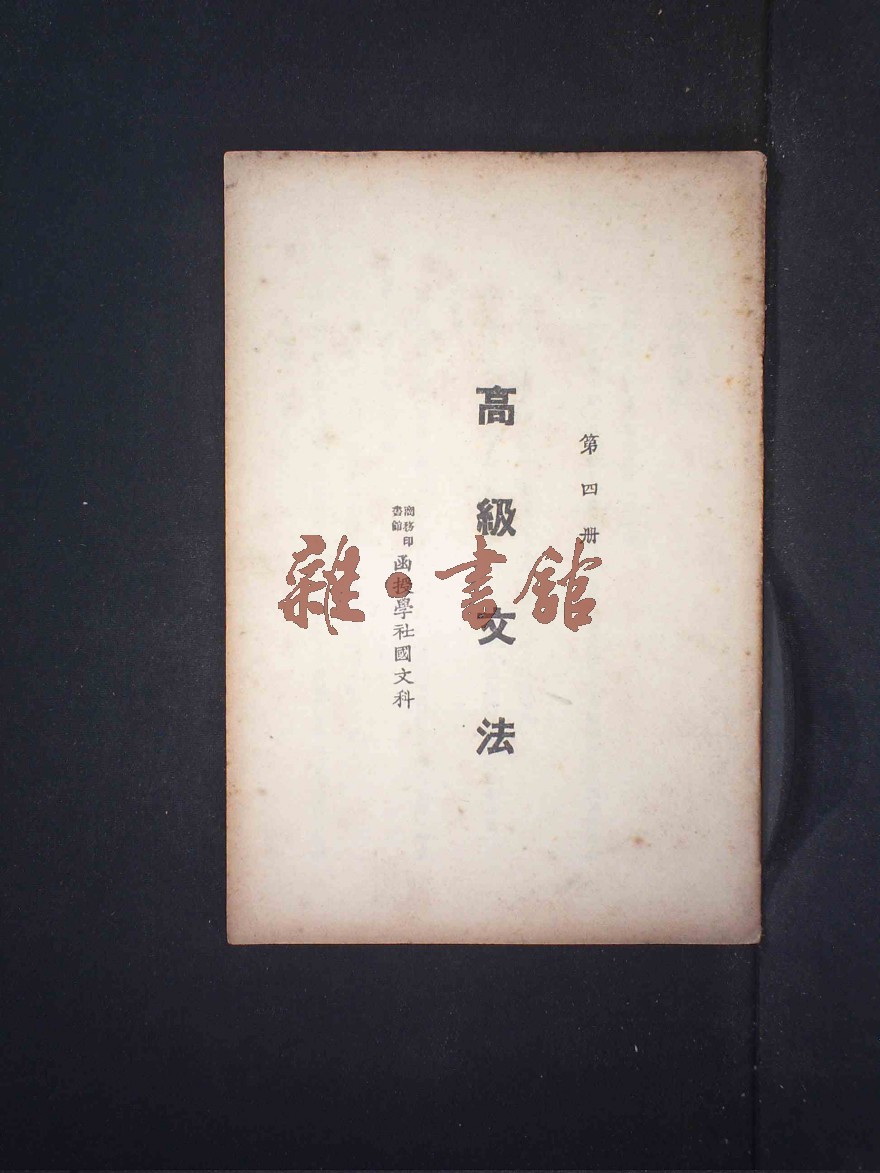 第四册
高級文法
商務印書館
函授學社國文科
雜·書館